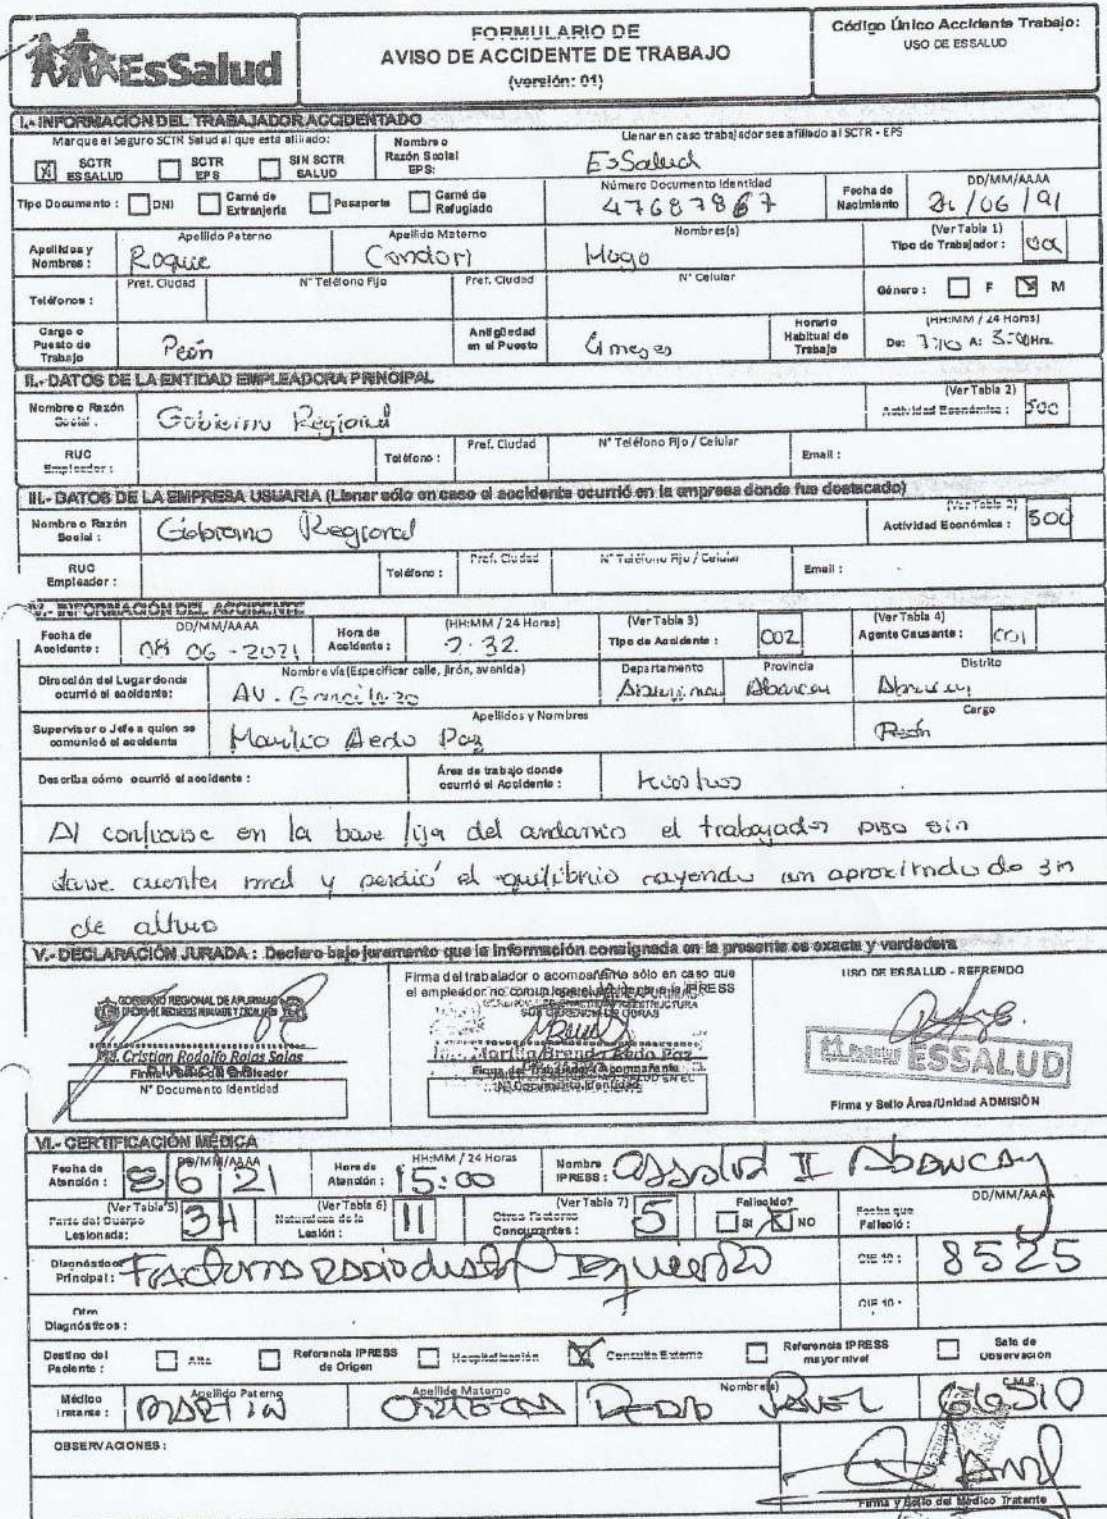 EsSalud
FORMULARIO DE
AVISO DE ACCIDENTE DE TRABAJO
(versión: 01)
Código Único Accidente Trabajo:
USO DE ESSALUD
I.- INFORMACIÓN DEL TRABAJADOR ACCIDENTADO
Marque el Seguro SCTR Salud al que está afiliado:
SCTR ESSALUD
SCTR EPS
SIN SCTR SALUD
Nombre o Razón Social EPS:
Llenar en caso trabajador sea afiliado al SCTR - EPS
EsSalud
Tipo Documento :
DNI
Carné de Extranjería
Pasaporte
Carné de Refugiado
Número Documento Identidad
47687867
Fecha de Nacimiento
DD/MM/AAAA
/06/91
Apellidos y Nombres :
Apellido Paterno
Roque
Apellido Materno
Condori
Nombres(s)
Hugo
(Ver Tabla 1)
Tipo de Trabajador :
Teléfonos :
Pref. Ciudad
N° Teléfono Fijo
Pref. Ciudad
N° Celular
Género :
F
M
Cargo o Puesto de Trabajo
Peón
Antigüedad en el Puesto
meses
Horario Habitual de Trabajo
(HH:MM / 24 Horas)
De: A: Hrs.
II.- DATOS DE LA ENTIDAD EMPLEADORA PRINCIPAL
Nombre o Razón Social :
Gobierno Regional
(Ver Tabla 2)
Actividad Económica :
500
RUC Empleador :
Teléfono :
Pref. Ciudad
N° Teléfono Fijo / Celular
Email :
III.- DATOS DE LA EMPRESA USUARIA (Llenar sólo en caso el accidente ocurrió en la empresa donde fue destacado)
Nombre o Razón Social :
Gobierno Regional
(Ver Tabla 2)
Actividad Económica :
500
RUC Empleador :
Teléfono :
Pref. Ciudad
N° Teléfono Fijo / Celular
Email :
IV.- INFORMACIÓN DEL ACCIDENTE
Fecha de Accidente :
DD/MM/AAAA
08 06 - 2021
Hora de Accidente :
(HH:MM / 24 Horas)
(Ver Tabla 3)
Tipo de Accidente :
002
(Ver Tabla 4)
Agente Causante :
001
Dirección del Lugar donde ocurrió el accidente:
Nombre vía (Especificar calle, jirón, avenida)
AV. Garcilazo
Departamento
Apurimac
Provincia
Abancay
Distrito
Abancay
Supervisor o Jefe a quien se comunicó el accidente
Apellidos y Nombres
Aedo Paz
Cargo
Peón
Describa cómo ocurrió el accidente :
Área de trabajo donde ocurrió el Accidente :
Al confiarse en la base fija del andamio el trabajador piso sin
darse cuenta mal y perdió el equilibrio cayendo un aproximado de 3m
de altura
V.- DECLARACIÓN JURADA : Declaro bajo juramento que la información consignada en la presente es exacta y verdadera
GOBIERNO REGIONAL DE APURIMAC
Cristian Rodolfo Rojas Salas
Firma y Sello del Empleador
N° Documento Identidad
Firma del trabajador o acompañante sólo en caso que
el empleador no comunique el accidente a la IPRESS
SUB GERENCIA DE OBRAS
Brenda Aedo Paz
Firma del Trabajador o Acompañante
N° Documento Identidad
USO DE ESSALUD - REFRENDO
ESSALUD
Firma y Sello Área/Unidad ADMISIÓN
VI.- CERTIFICACIÓN MÉDICA
Fecha de Atención :
DD/MM/AAAA
8/6/21
Hora de Atención :
HH:MM / 24 Horas
15:00
Nombre IPRESS :
Essalud II Abancay
(Ver Tabla 5)
Parte del Cuerpo Lesionada:
34
(Ver Tabla 6)
Naturaleza de la Lesión :
11
(Ver Tabla 7)
Otros Factores Concurrantes :
5
Fallecido?
SI
NO
Fecha que Falleció :
DD/MM/AAAA
Diagnóstico Principal :
Fractura Radio distal Izquierdo
CIE 10 :
8525
Otro Diagnósticos :
CIE 10 :
Destino del Paciente :
Alta
Referencia IPRESS de Origen
Hospitalización
Consulta Externa
Referencia IPRESS mayor nivel
Sala de Observación
Médico tratante :
Apellido Paterno
MARTIN
Apellido Materno
Nombre(s)
C.M.P.
OBSERVACIONES :
Firma y Sello del Médico Tratante